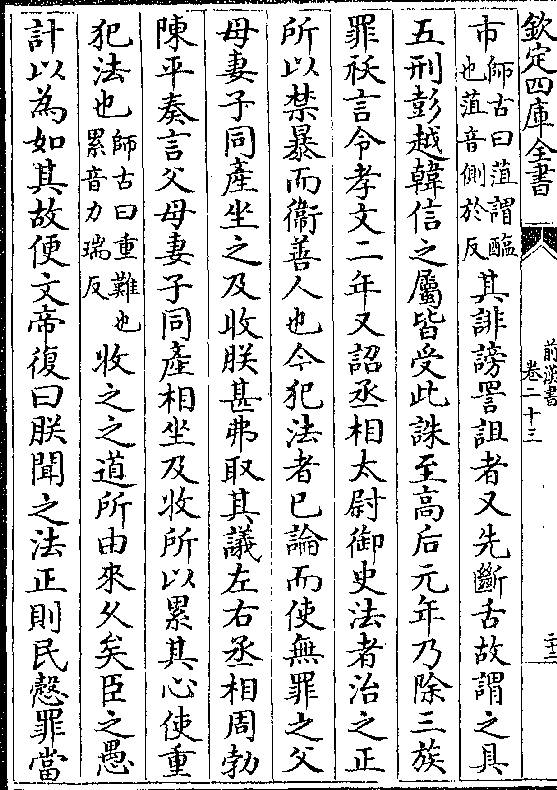 欽定四庫全書
前漢書
卷二十三
二十二
市師古曰菹謂醢也菹音側於反其誹謗詈詛者又先斷舌故謂之具
五刑彭越韓信之屬皆受此誅至高后元年乃除三族
罪祅言令孝文二年又詔丞相太尉御史法者治之正
所以禁暴而衞善人也今犯法者已論而使無罪之父
母妻子同產坐之及收朕甚弗取其議左右丞相周勃
陳平奏言父母妻子同產相坐及收所以累其心使重
犯法也師古曰重難也累音力瑞反收之之道所由來乆矣臣之愚
計以為如其故便文帝復曰朕聞之法正則民慤罪當